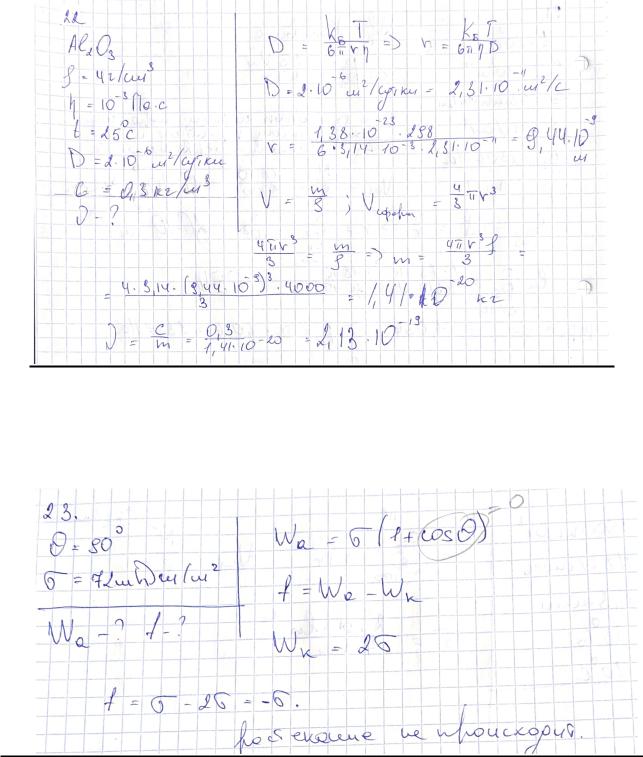 22
Al₂O₃
ρ = 4 г/см³
η = 10⁻³ Па·с
t = 25°C
D = 2·10⁻⁶ м²/сутки
C = 0,3 кг/м³
ν - ?
D = k_Б T / 6πrη => r = k_Б T / 6πηD
D = 2·10⁻⁶ м²/сутки = 2,31·10⁻¹¹ м²/с
r = 1,38·10⁻²³·298 / 6·3,14·10⁻³·2,31·10⁻¹¹ = 9,44·10⁻⁹ м
V = m/ρ ; V сферы = 4/3 πr³
4πr³/3 = m/ρ => m = 4πr³ρ/3 =
= 4·3,14·(9,44·10⁻⁹)³·4000 / 3 = 1,41·10⁻²⁰ кг
ν = c/m = 0,3 / 1,41·10⁻²⁰ = 2,13·10⁻¹⁹
23.
θ = 90°
σ = 72 мДж/м²
Wa - ? f - ?
Wa = σ(1+cosθ) = 0
f = Wa - Wк
Wк = 2σ
f = σ - 2σ = -σ.
растекание не происходит.